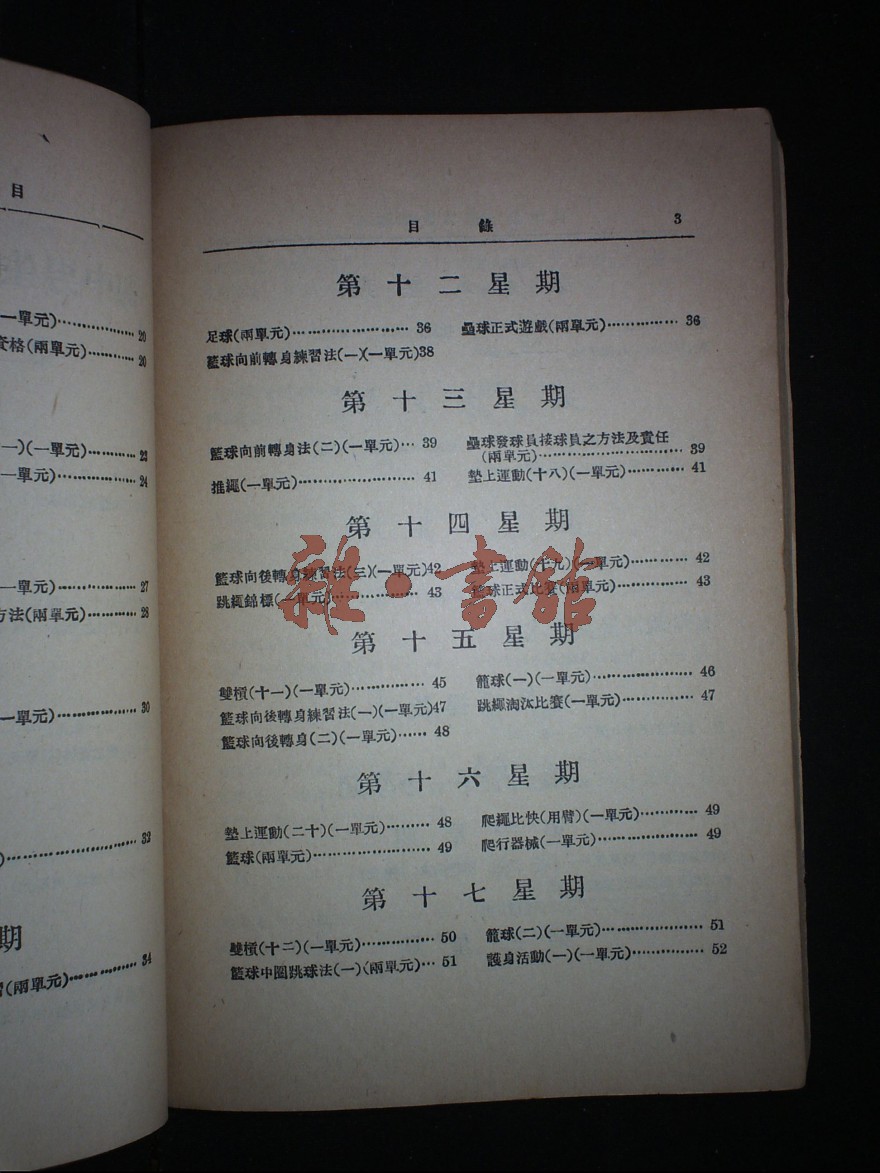 目
一單元)……………… 20
資格(兩單元)………… 20
一)(一單元)………… 23
一單元)……………… 24
一單元)……………… 27
方法(兩單元)………… 28
一單元)……………… 30
)……………… 33
期
習(兩單元)……………… 34
目 錄 3
第十二星期
足球(兩單元)……………………… 36
壘球正式遊戲(兩單元)…………… 36
籃球向前轉身練習法(一)(一單元)38
第十三星期
籃球向前轉身法(二)(一單元)… 39
壘球發球員接球員之方法及責任
(兩單元)…………………………… 39
推繩(一單元)……………………… 41
墊上運動(十八)(一單元)………… 41
第十四星期
籃球向後轉身練習法(三)(一單元)42
墊上運動(十九)(一單元)………… 42
跳繩錦標(一單元)………………… 43
籃球正式比賽(兩單元)…………… 43
雜·書館
第十五星期
雙槓(十一)(一單元)…………… 45
籠球(一)(一單元)………………… 46
籃球向後轉身練習法(一)(一單元)47
跳繩淘汰比賽(一單元)…………… 47
籃球向後轉身(二)(一單元)…… 48
第十六星期
墊上運動(二十)(一單元)……… 48
爬繩比快(用臂)(一單元)………… 49
籃球(兩單元)……………………… 49
爬行器械(一單元)………………… 49
第十七星期
雙槓(十二)(一單元)…………… 50
籠球(二)(一單元)………………… 51
籃球中圈跳球法(一)(兩單元)… 51
護身活動(一)(一單元)…………… 52